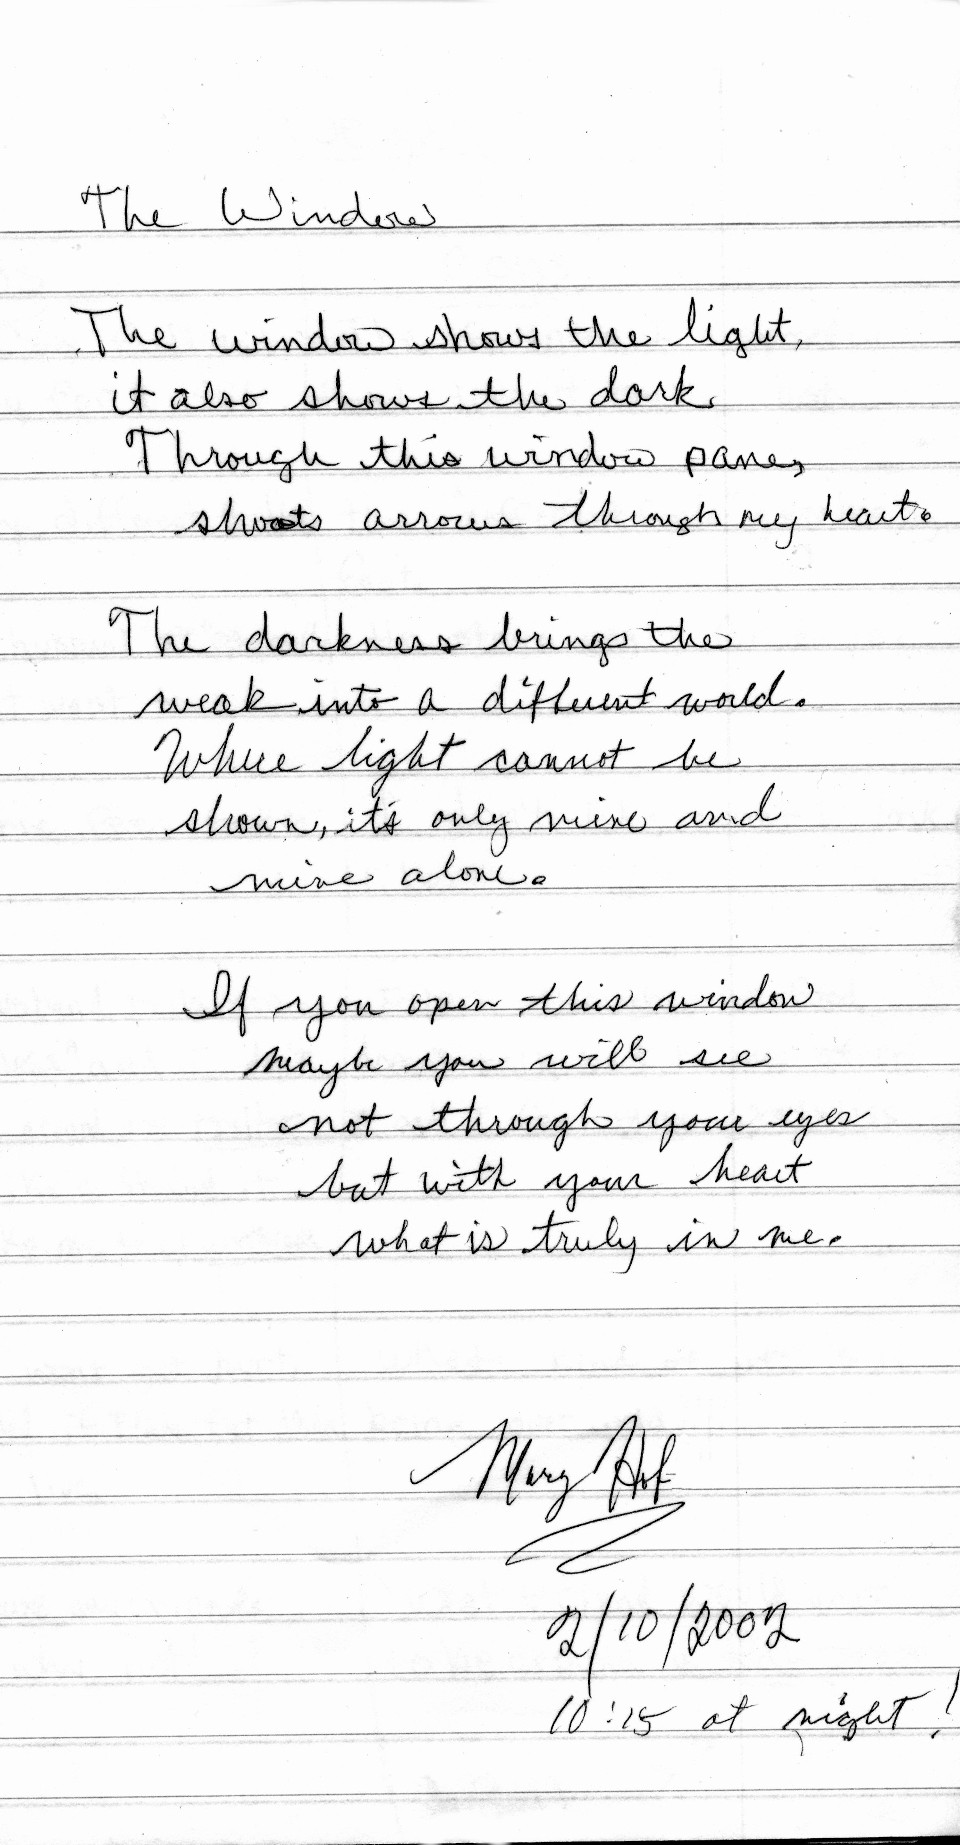 The Window
The window shows the light,
it also shows the dark.
Through this window pane,
shoots arrows through my heart.
The darkness brings the
weak into a different world.
Where light cannot be
shown, it's only mine and
mine alone.
If you open this window
maybe you will see
not through your eyes
but with your heart
what is truly in me.
Mary Hof
2/10/2002
10:15 at night!